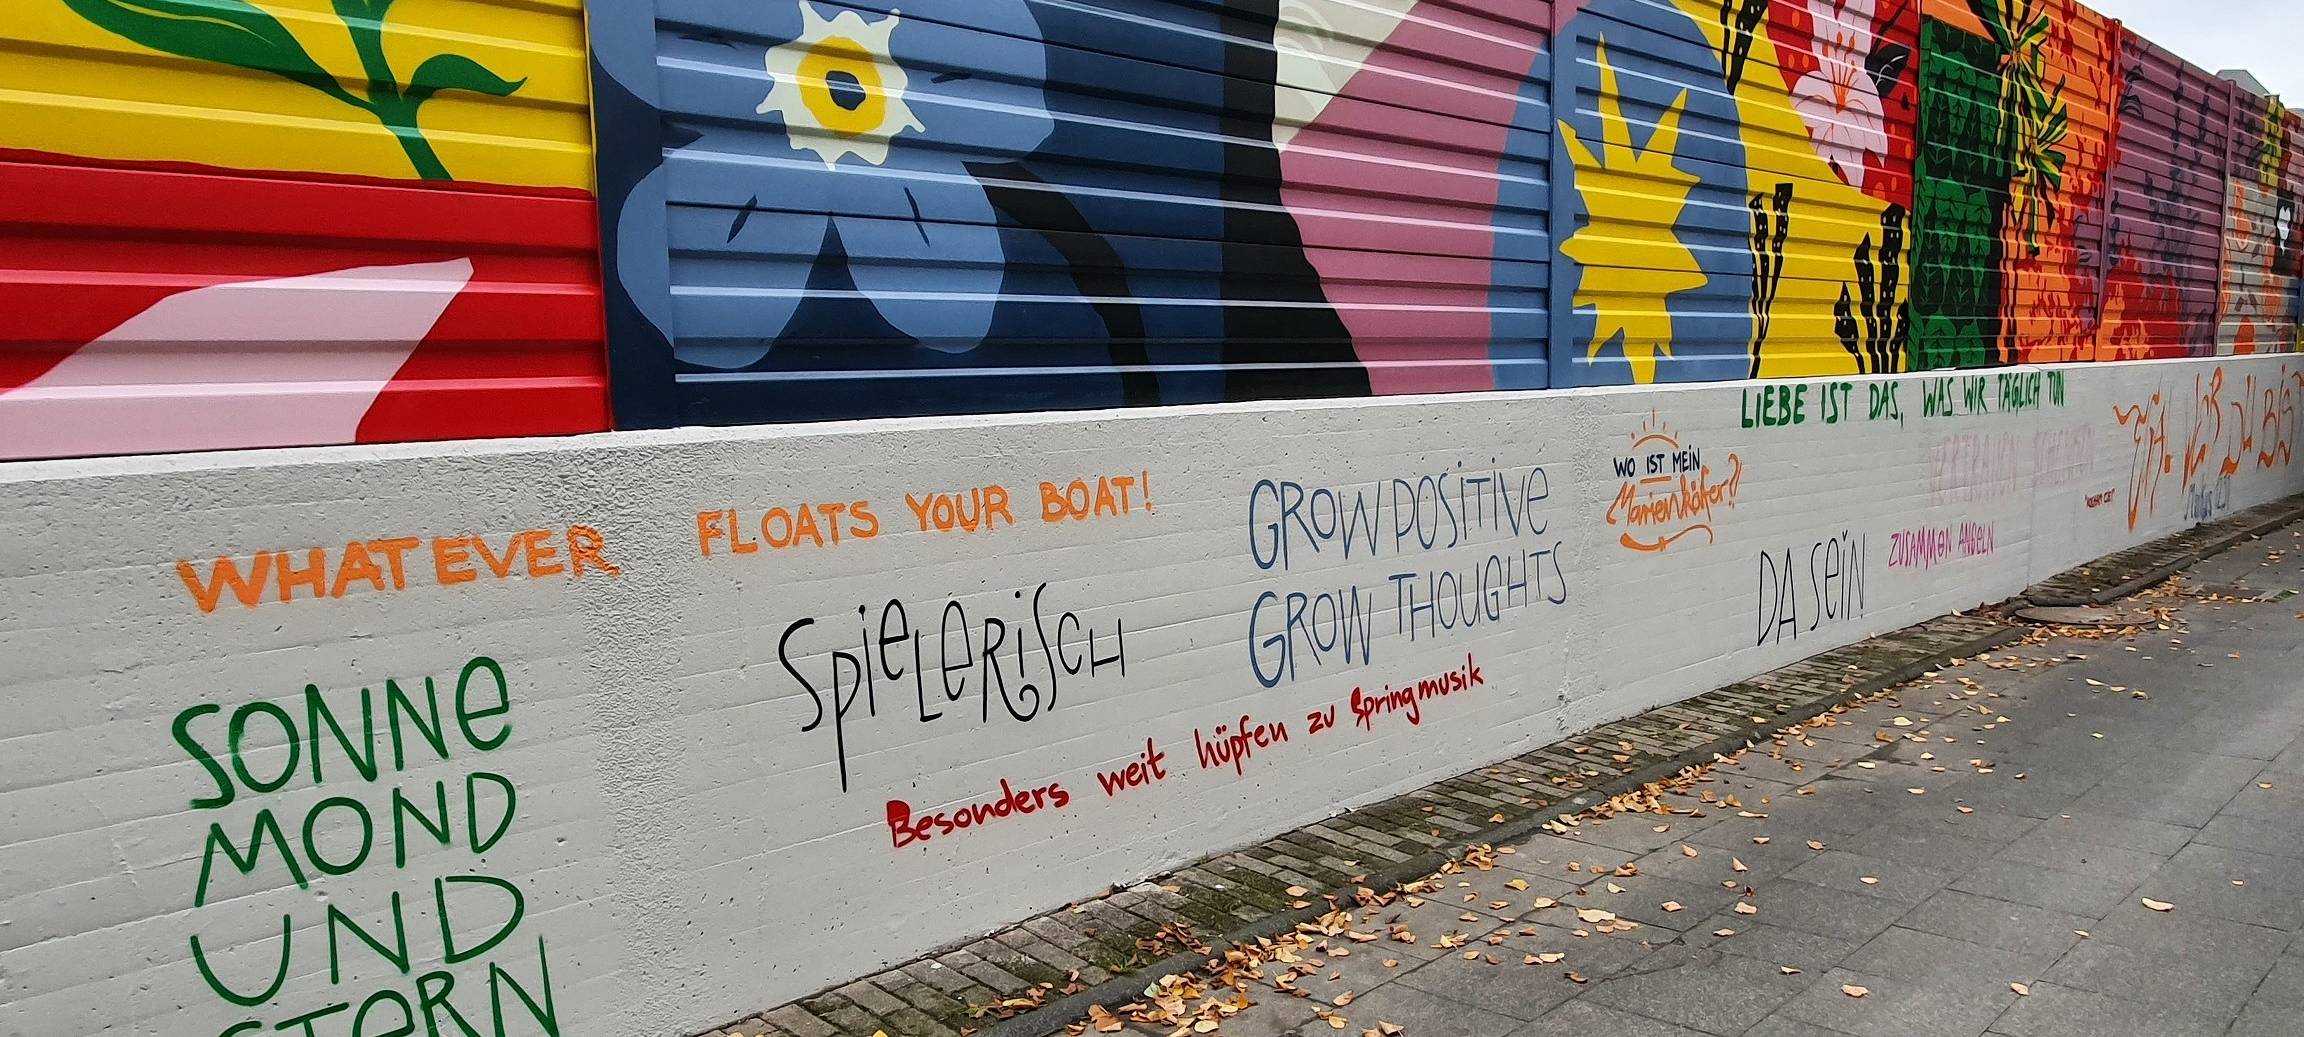 WHATEVER FLOATS YOUR BOAT!
SONNE
MOND
UND
STERN
SPIELERISCH
Besonders weit hüpfen zu Springmusik
GROW POSITIVE
GROW THOUGHTS
WO IST MEIN
Marienkäfer?
LIEBE IST DAS, WAS WIR TÄGLICH TUN
DA SEIN
ZUSAMMEN ANGELN
VERTRAUEN SCHENKEN
DU BIST